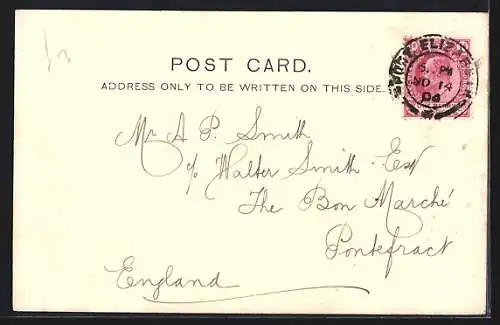 POST CARD.
ADDRESS ONLY TO BE WRITTEN ON THIS SIDE.
PORT ELIZABETH
5. PM
NO 14
04
Mr A P. Smith
c/o Walter Smith Esq
The Bon Marché
Pontefract
England